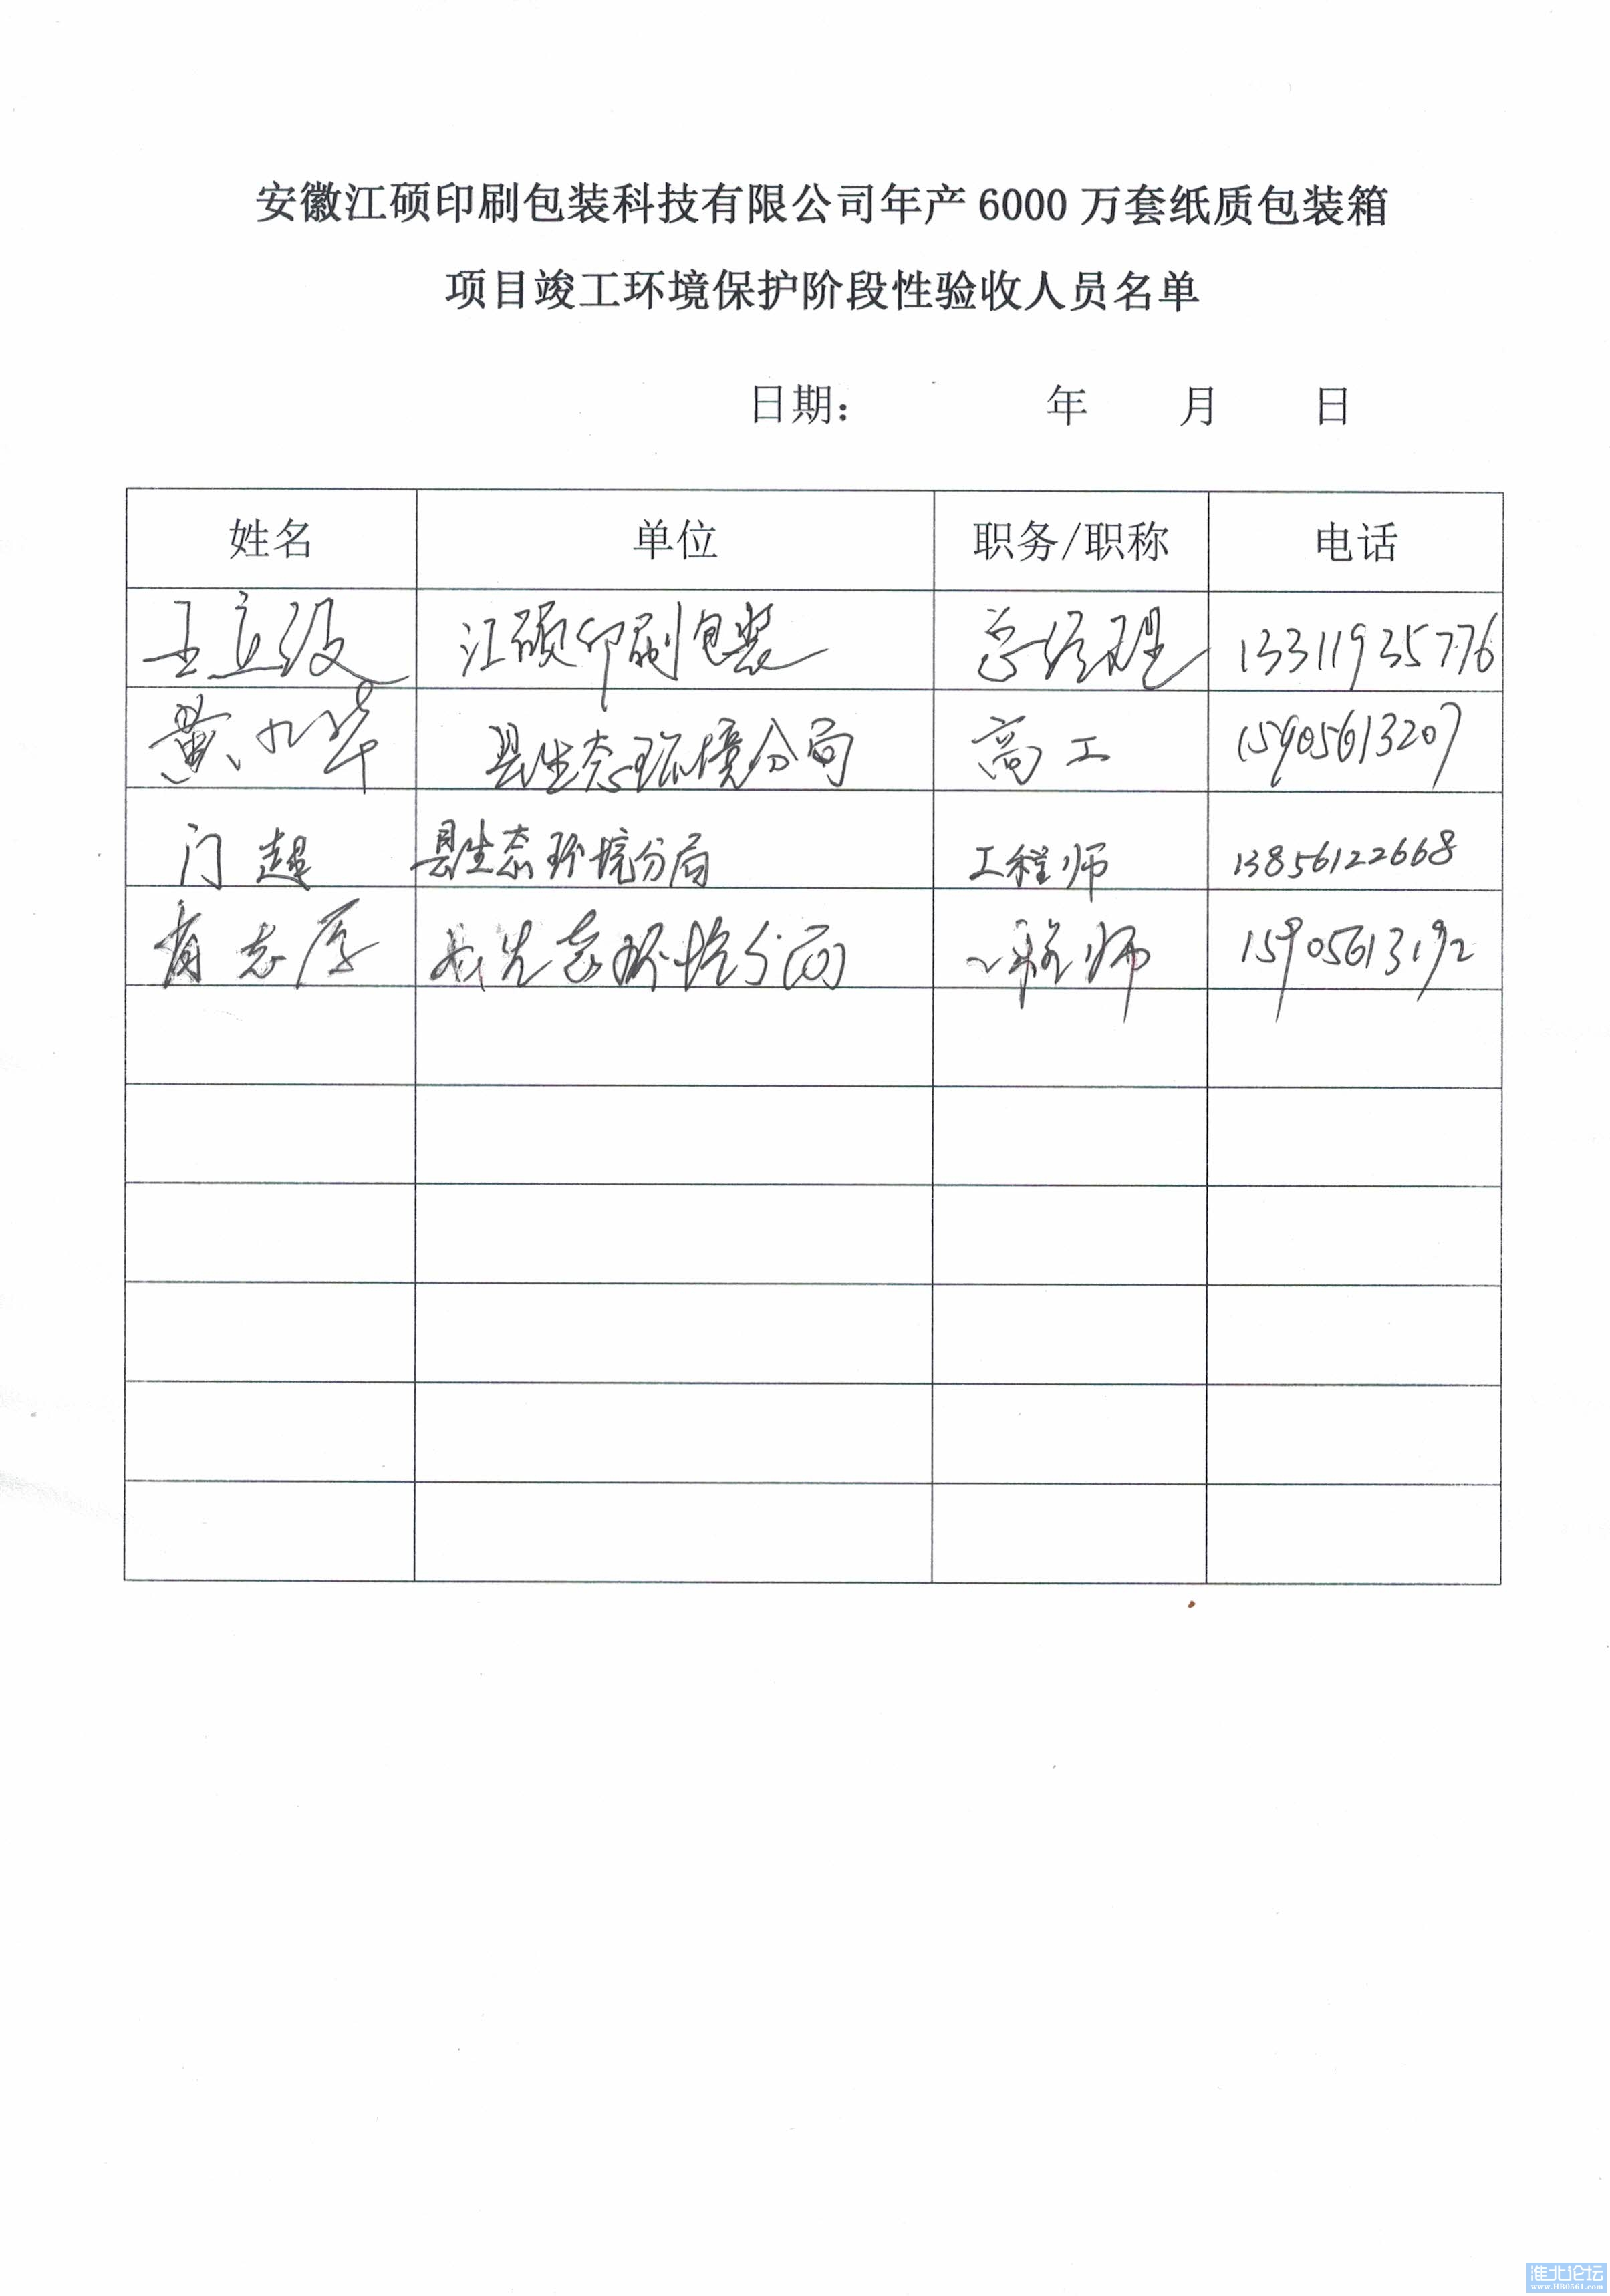 安徽江硕印刷包装科技有限公司年产 6000 万套纸质包装箱
项目竣工环境保护阶段性验收人员名单
日期： 年 月 日
姓名 单位 职务/职称 电话
王立 江硕印刷包装 总经理 13311935776
黄 县生态环境分局 高工 15905613207
门超 县生态环境分局 工程师 13856122668
肖志厚 县生态环境分局 工程师 15905613192
淮北论坛
www.HB0561.com